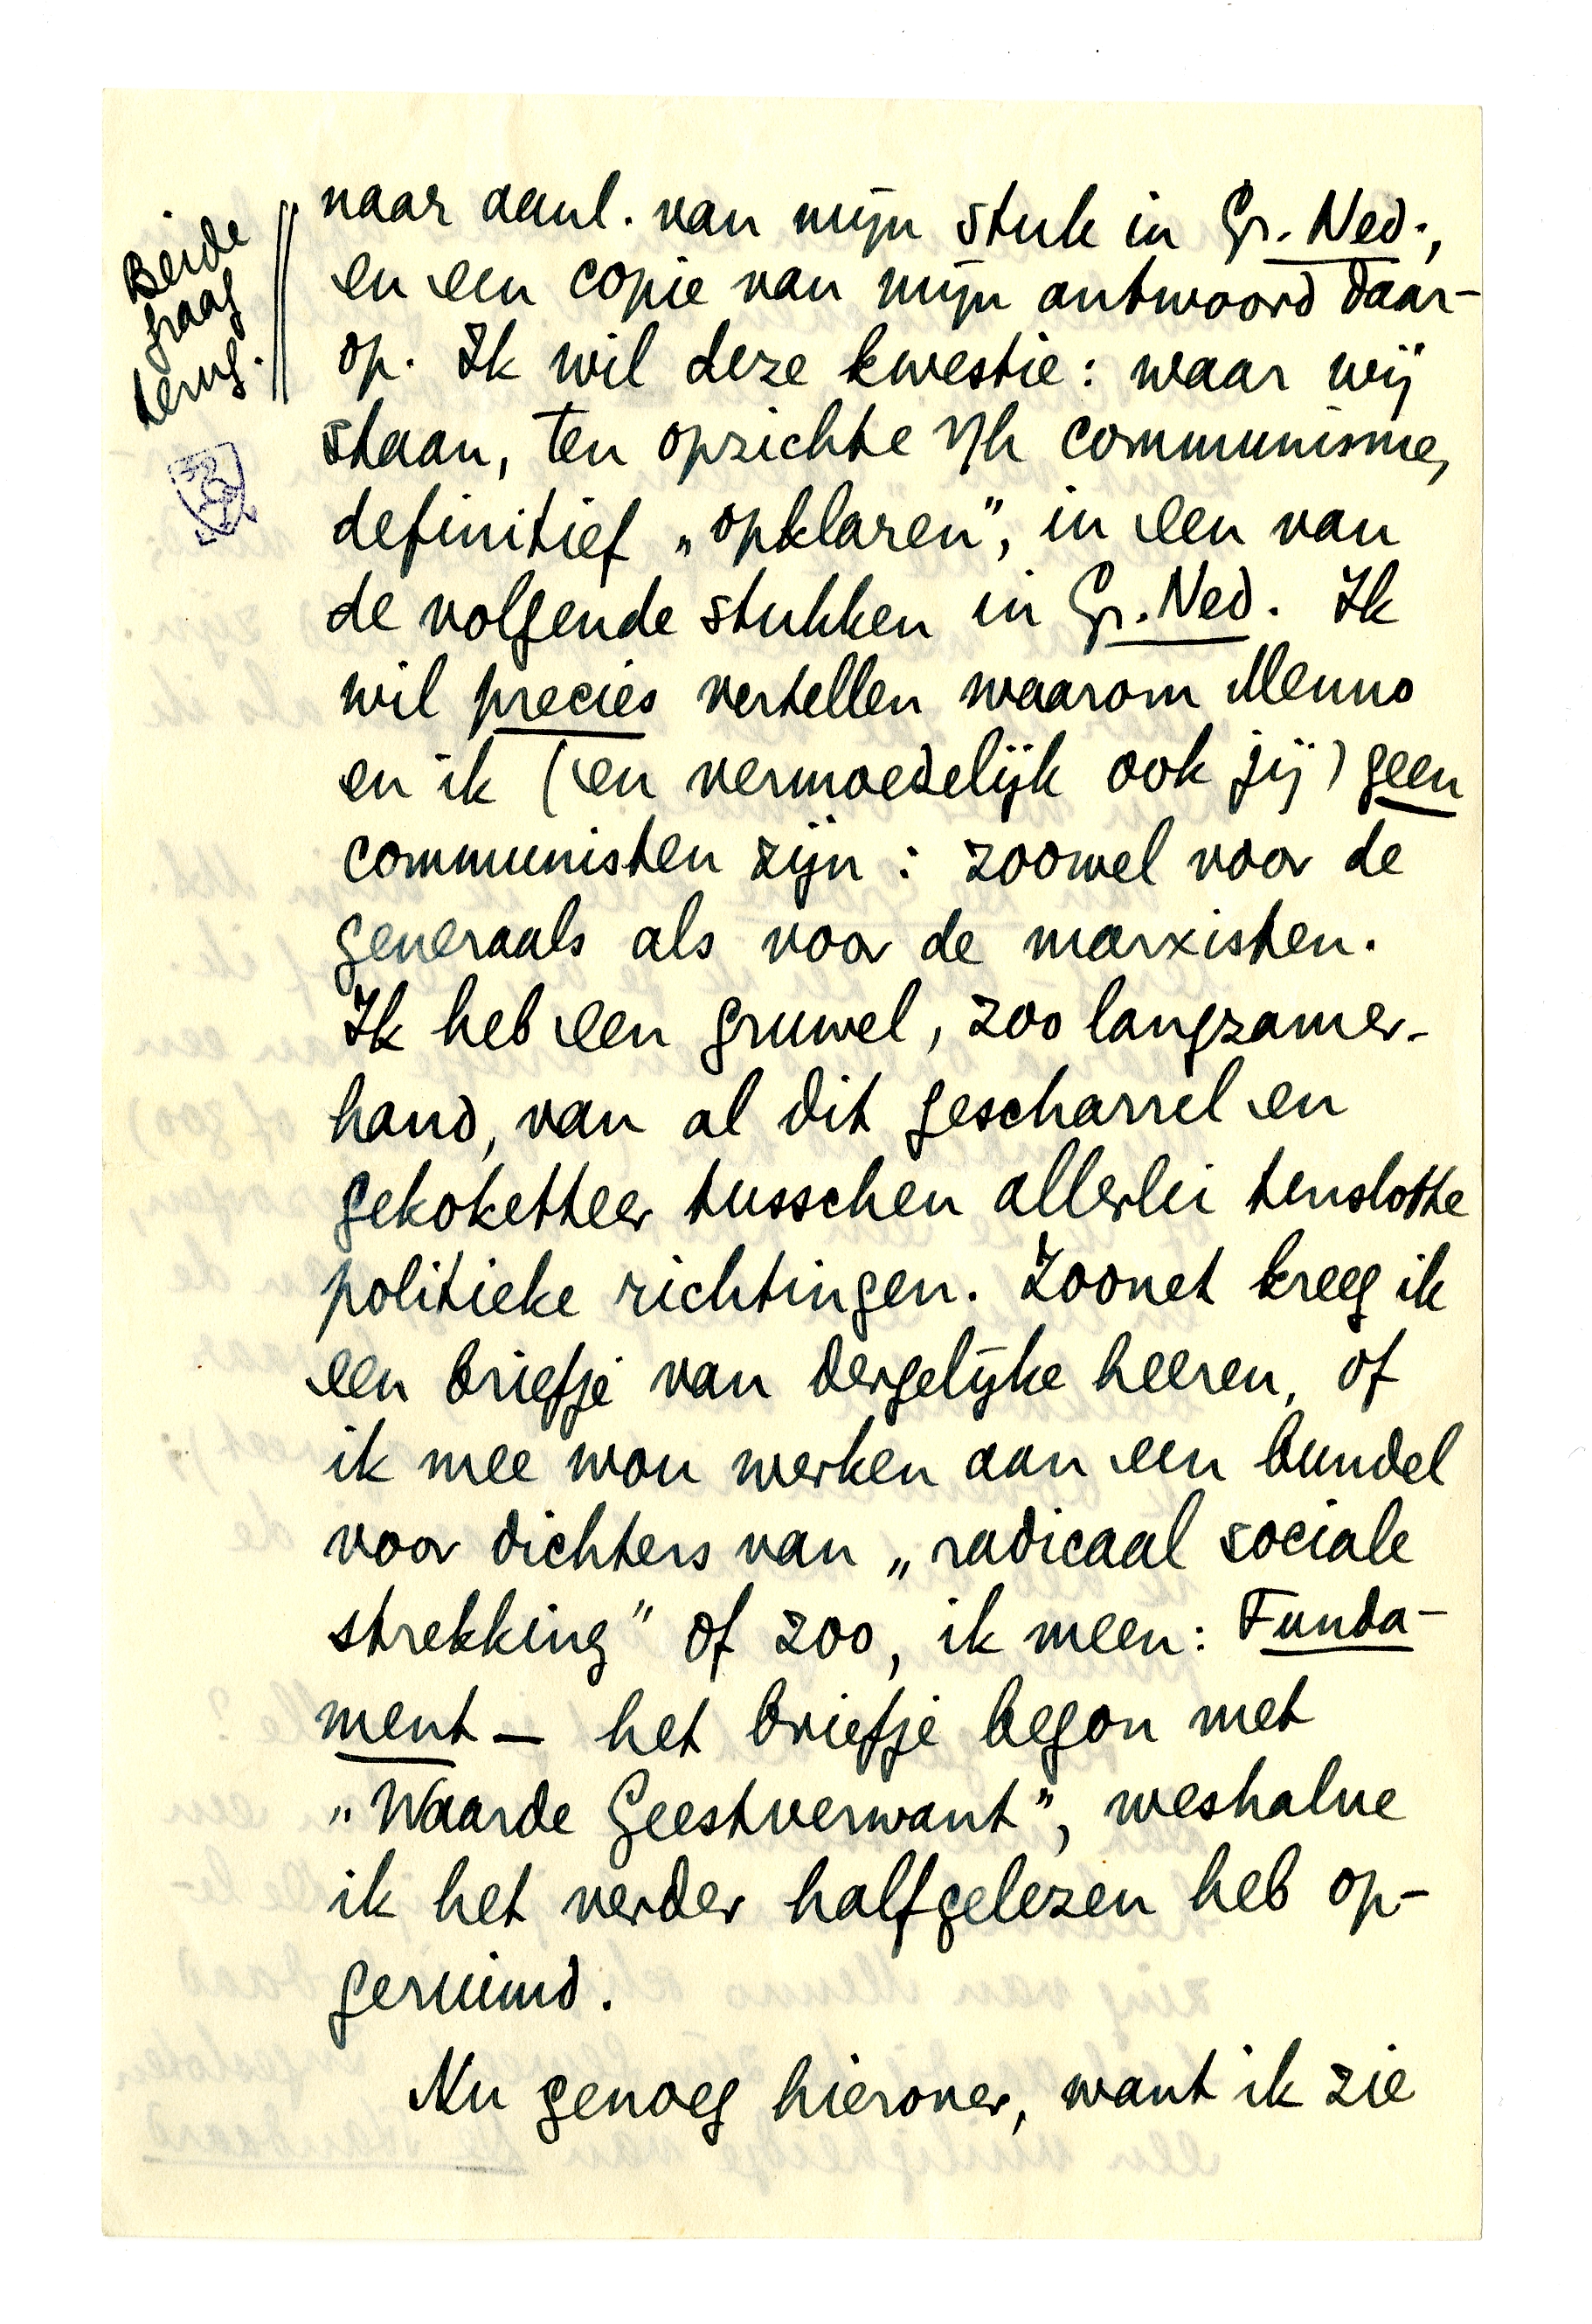 Beide
graag
terug.
naar aanl. van mijn stuk in Gr. Ned.,
en een copie van mijn antwoord daar-
op. Ik wil deze kwestie: waar wij
staan, ten opzichte v/h communisme,
definitief „opklaren”, in een van
de volgende stukken in Gr. Ned. Ik
wil precies vertellen waarom Menno
en ik (en vermoedelijk ook jij) geen
communisten zijn: zoowel voor de
generaals als voor de marxisten.
Ik heb een gruwel, zoo langzamer-
hand, van al dit gescharrel en
gekoketteer tusschen allerlei tenslotte
politieke richtingen. Zoonet kreeg ik
een briefje van dergelijke heeren, of
ik mee wou werken aan een bundel
voor dichters van „radicaal sociale
strekking” of zoo, ik meen: Funda-
ment – het briefje begon met
„Waarde Geestverwant”, weshalve
ik het verder halfgelezen heb op-
geruimd.
Nu genoeg hierover, want ik zie